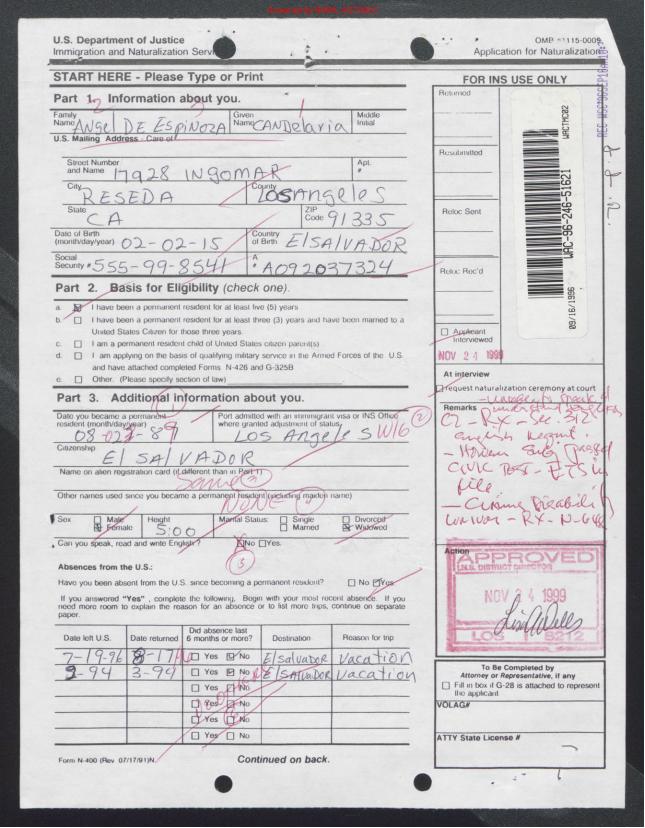 U.S. Department of Justice
Immigration and Naturalization Serv
OMB #1115-0009
Application for Naturalization
START HERE - Please Type or Print
FOR INS USE ONLY
Part 1. Information about you.
Family Name ANGEL DE ESPINOZA
Given Name CANDELARIA
Middle Initial
U.S. Mailing Address - Care of
Street Number and Name 17928 INGOMAR
Apt. #
City RESEDA
County LOS Angeles
State CA
ZIP Code 91335
Date of Birth (month/day/year) 02-02-15
Country of Birth El SALVADOR
Social Security # 555-99-8541
A # A092037324
Part 2. Basis for Eligibility (check one).
a. I have been a permanent resident for at least five (5) years
b. I have been a permanent resident for at least three (3) years and have been married to a
United States Citizen for those three years.
c. I am a permanent resident child of United States citizen parent(s)
d. I am applying on the basis of qualifying military service in the Armed Forces of the U.S.
and have attached completed Forms N-426 and G-325B
e. Other. (Please specify section of law)
Part 3. Additional information about you.
Date you became a permanent resident (month/day/year)
Port admitted with an immigrant visa or INS Office where granted adjustment of status.
LOS Angeles W16 2
Citizenship
El SALVADOR
Name on alien registration card (if different than in Part 1)
Same 3
Other names used since you became a permanent resident (including maiden name)
NONE 4
Sex Male Female
Height 5:00
Marital Status: Single Married Divorced Widowed
Can you speak, read and write English? No Yes.
5
Absences from the U.S.:
Have you been absent from the U.S. since becoming a permanent resident? No Yes.
If you answered "Yes" , complete the following, Begin with your most recent absence. If you
need more room to explain the reason for an absence or to list more trips, continue on separate
paper.
Date left U.S.
Date returned
Did absence last 6 months or more?
Destination
Reason for trip
7-19-96 8-17-96 Yes No El Salvador Vacation
2-94 3-94 Yes No El SALVADOR Vacation
Yes No
Yes No
Yes No
Yes No
Form N-400 (Rev 07/17/91)N
Continued on back.
Returned
Resubmitted
Reloc Sent
Reloc Rec'd
WAC-96-246-51621
WACTMC02
09/16/1996
Applicant Interviewed
NOV 24 1999
At interview
request naturalization ceremony at court
Remarks
Action
APPROVED
I.N.S. DISTRICT DIRECTOR
NOV 24 1999
LOS 8212
To Be Completed by
Attorney or Representative, if any
Fill in box if G-28 is attached to represent
the applicant
VOLAG#
ATTY State License #